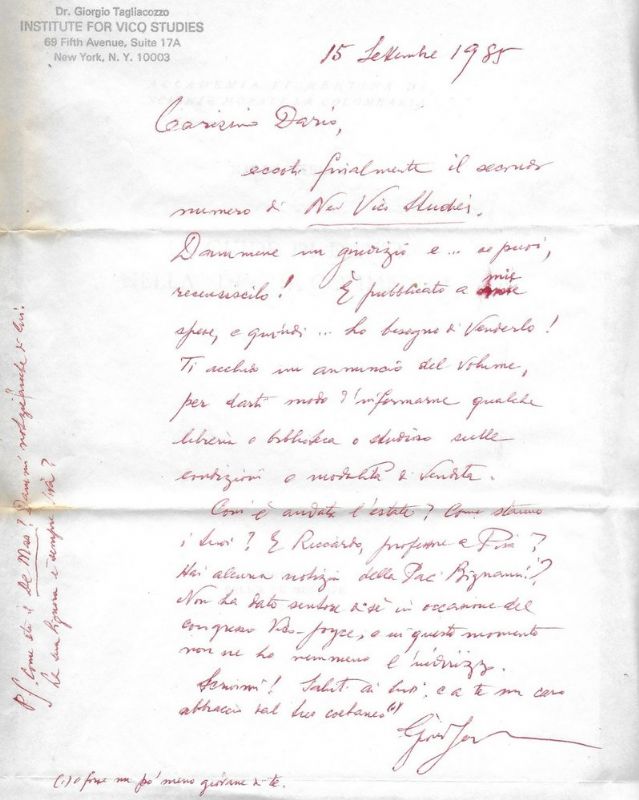 Dr. Giorgio Tagliacozzo
INSTITUTE FOR VICO STUDIES
69 Fifth Avenue, Suite 17A
New York, N. Y. 10003
15 Settembre 1985
Carissimo Dario,
eccoti finalmente il secondo
numero di New Vico Studies.
Dammene un giudizio e ... se puoi,
recensiscilo! È pubblicato a mie
spese, e quindi ... ho bisogno di venderlo!
Ti accludo un annuncio del volume,
per darti modo d'informarne qualche
libreria o biblioteca o studioso sulle
condizioni o modalità di vendita.
Com'è andata l'estate? Come stanno
i tuoi? E Riccardo, professore a Pisa?
Hai alcuna notizia della Paci Bignami?
Non ha dato sentore di sè in occasione del
congresso Vico-Joyce, e in questo momento
non ne ho nemmeno l'indirizzo.
Scrivimi! Saluti ai tuoi, e a te un caro
abbraccio dal tuo coetaneo(1)
(1) o forse un pò meno giovane di te.
PS Come sta il De Mas? Dammi notizie anche di lui.
La sua Signora è sempre viva?